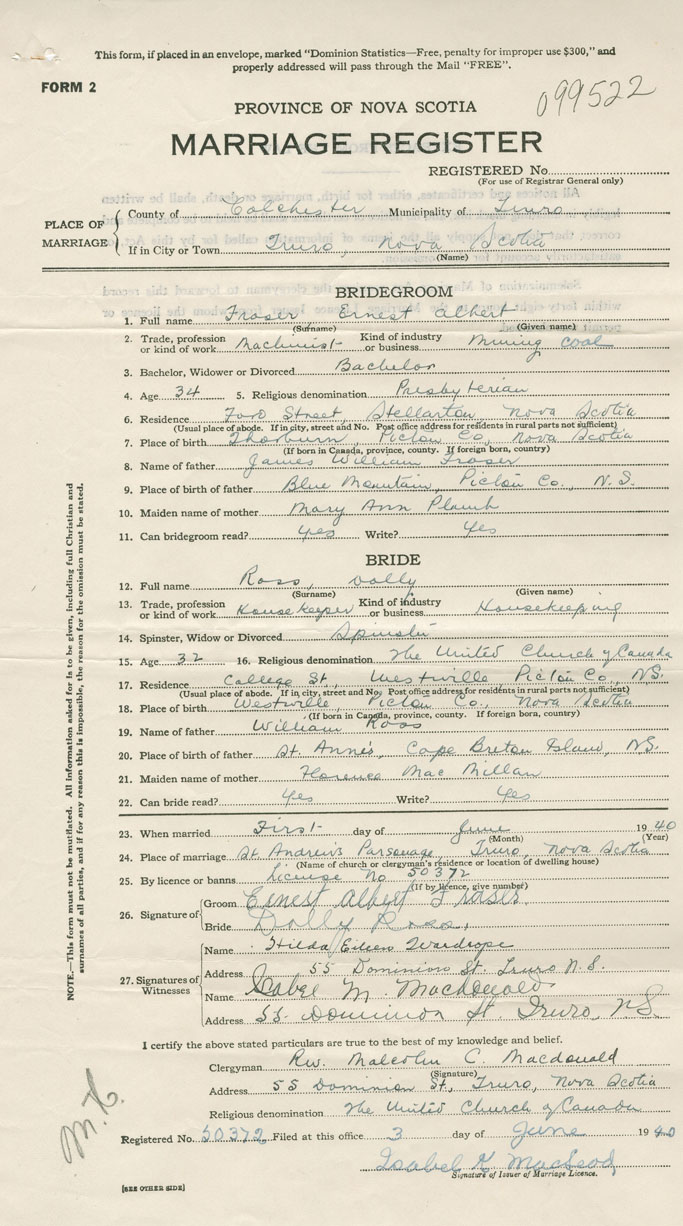 This form, if placed in an envelope, marked "Dominion Statistics—Free, penalty for improper use $300," and
properly addressed will pass through the Mail "FREE".
FORM 2
099522
PROVINCE OF NOVA SCOTIA
MARRIAGE REGISTER
REGISTERED No.
(For use of Registrar General only)
PLACE OF MARRIAGE
County of Colchester Municipality of Truro
If in City or Town Truro, Nova Scotia
(Name)
BRIDEGROOM
1. Full name Fraser Ernest Albert
(Surname) (Given name)
2. Trade, profession or kind of work Machinist Kind of industry or business Mining coal
3. Bachelor, Widower or Divorced Bachelor
4. Age 34 5. Religious denomination Presbyterian
6. Residence Ford Street, Stellarton, Nova Scotia
(Usual place of abode. If in city, street and No. Post office address for residents in rural parts not sufficient)
7. Place of birth Thorburn, Pictou Co., Nova Scotia
(If born in Canada, province, county. If foreign born, country)
8. Name of father James William Fraser
9. Place of birth of father Blue Mountain, Pictou Co., N.S.
10. Maiden name of mother Mary Ann Plumb
11. Can bridegroom read? yes Write? yes
BRIDE
12. Full name Ross, Dolly
(Surname) (Given name)
13. Trade, profession or kind of work Housekeeper Kind of industry or business Housekeeping
14. Spinster, Widow or Divorced Spinster
15. Age 32 16. Religious denomination The United Church of Canada
17. Residence College St., Westville, Pictou Co., N.S.
(Usual place of abode. If in city, street and No. Post office address for residents in rural parts not sufficient)
18. Place of birth Westville, Pictou Co., Nova Scotia
(If born in Canada, province, county. If foreign born, country)
19. Name of father William Ross
20. Place of birth of father St. Anne's, Cape Breton Island, N.S.
21. Maiden name of mother Florence Mac Millan
22. Can bride read? yes Write? yes
23. When married First day of June 1940
(Month) (Year)
24. Place of marriage St. Andrews Parsonage, Truro, Nova Scotia
(Name of church or clergyman's residence or location of dwelling house)
25. By licence or banns License No 50372
(If by licence, give number)
26. Signature of
Groom Ernest Albert Fraser
Bride Dolly Ross
27. Signatures of Witnesses
Name Hilda Eileen Wardrope
Address 55 Dominion St. Truro N.S.
Name Isabel M. Macdonald
Address 55 Dominion St. Truro, N.S.
I certify the above stated particulars are true to the best of my knowledge and belief.
Clergyman Rev. Malcolm C. Macdonald
(Signature)
Address 55 Dominion St., Truro, Nova Scotia
Religious denomination The United Church of Canada
Registered No. 50372 Filed at this office 3 day of June 1940
Isabel K. MacLeod
Signature of Issuer of Marriage Licence.
[SEE OTHER SIDE]
NOTE.—This form must not be mutilated. All information asked for is to be given, including full Christian and
surnames of all parties, and if for any reason this is impossible, the reason for the omission must be stated.